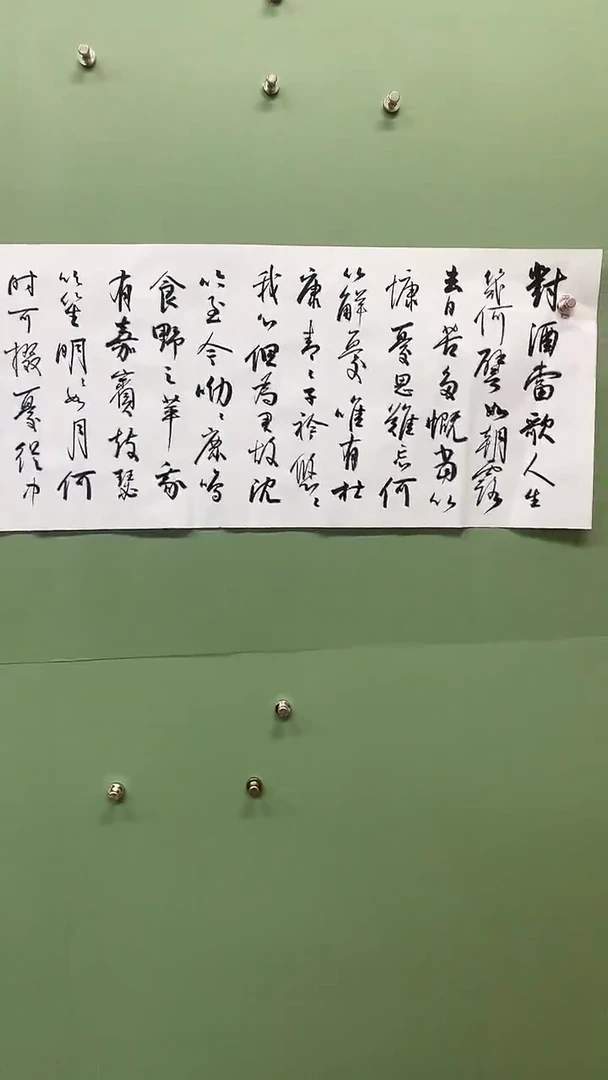 對酒當歌人生
幾何譬如朝露
去日苦多慨當以
慷憂思難忘何
以解憂唯有杜
康青〻子衿悠〻
我心但為君故沈
吟至今呦〻鹿鳴
食野之苹我
有嘉賓鼓瑟
吹笙明〻如月何
时可掇憂從中